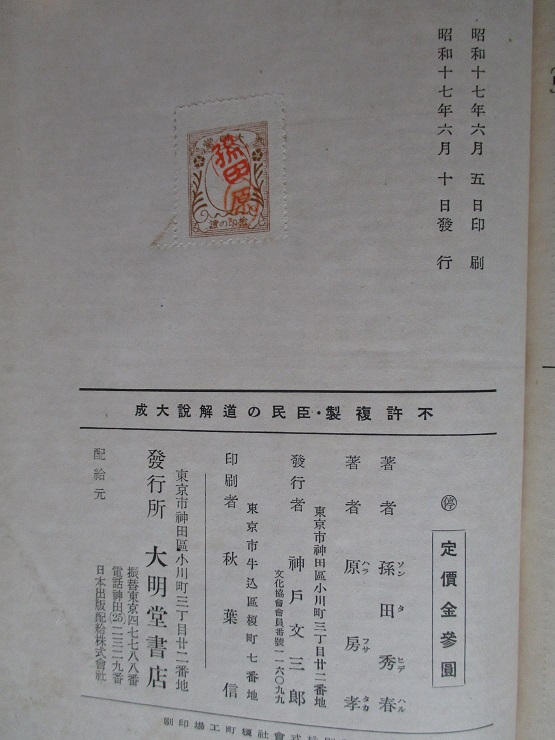 昭和十七年六月 五 日印 刷
昭和十七年六月 十 日發 行
孫田
原
不許複製・臣民の道解說大成
停
定價金參圓
著者 孫田秀春
ソンタヒデハル
著者 原房孝
ハラフサタカ
東京市神田區小川町三丁目廿二番地
發行者 神戶文三郎
文化協會會員番號一一六〇九九
東京市牛込區榎町七番地
印刷者 秋葉信
東京市神田區小川町三丁目廿二番地
發行所 大明堂書店
振替東京四七七八八番
電話神田(25)二三二九番
配給元 日本出版配給株式會社
式會社榎町工場印刷